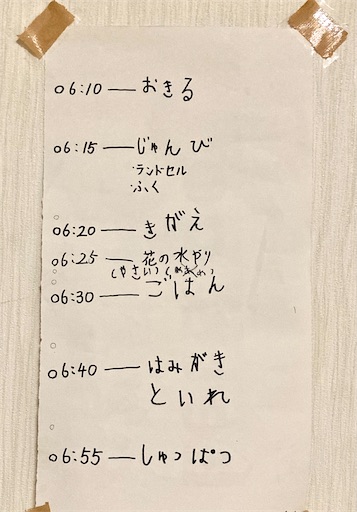 06:10 — おきる
06:15 — じゅんび
・ランドセル
・ふく
06:20 — きがえ
06:25 — 花の水やり
(やさい)
06:30 — ごはん
06:40 — はみがき
といれ
06:55 — しゅっぱつ